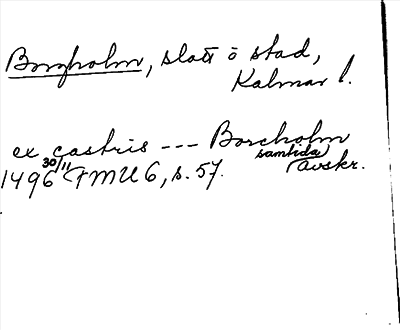 Borgholm, slott o stad,
Kalmar l.
ex castris --- Borcholm
1496 30/11 FMU 6, s. 57. samtida avskr.